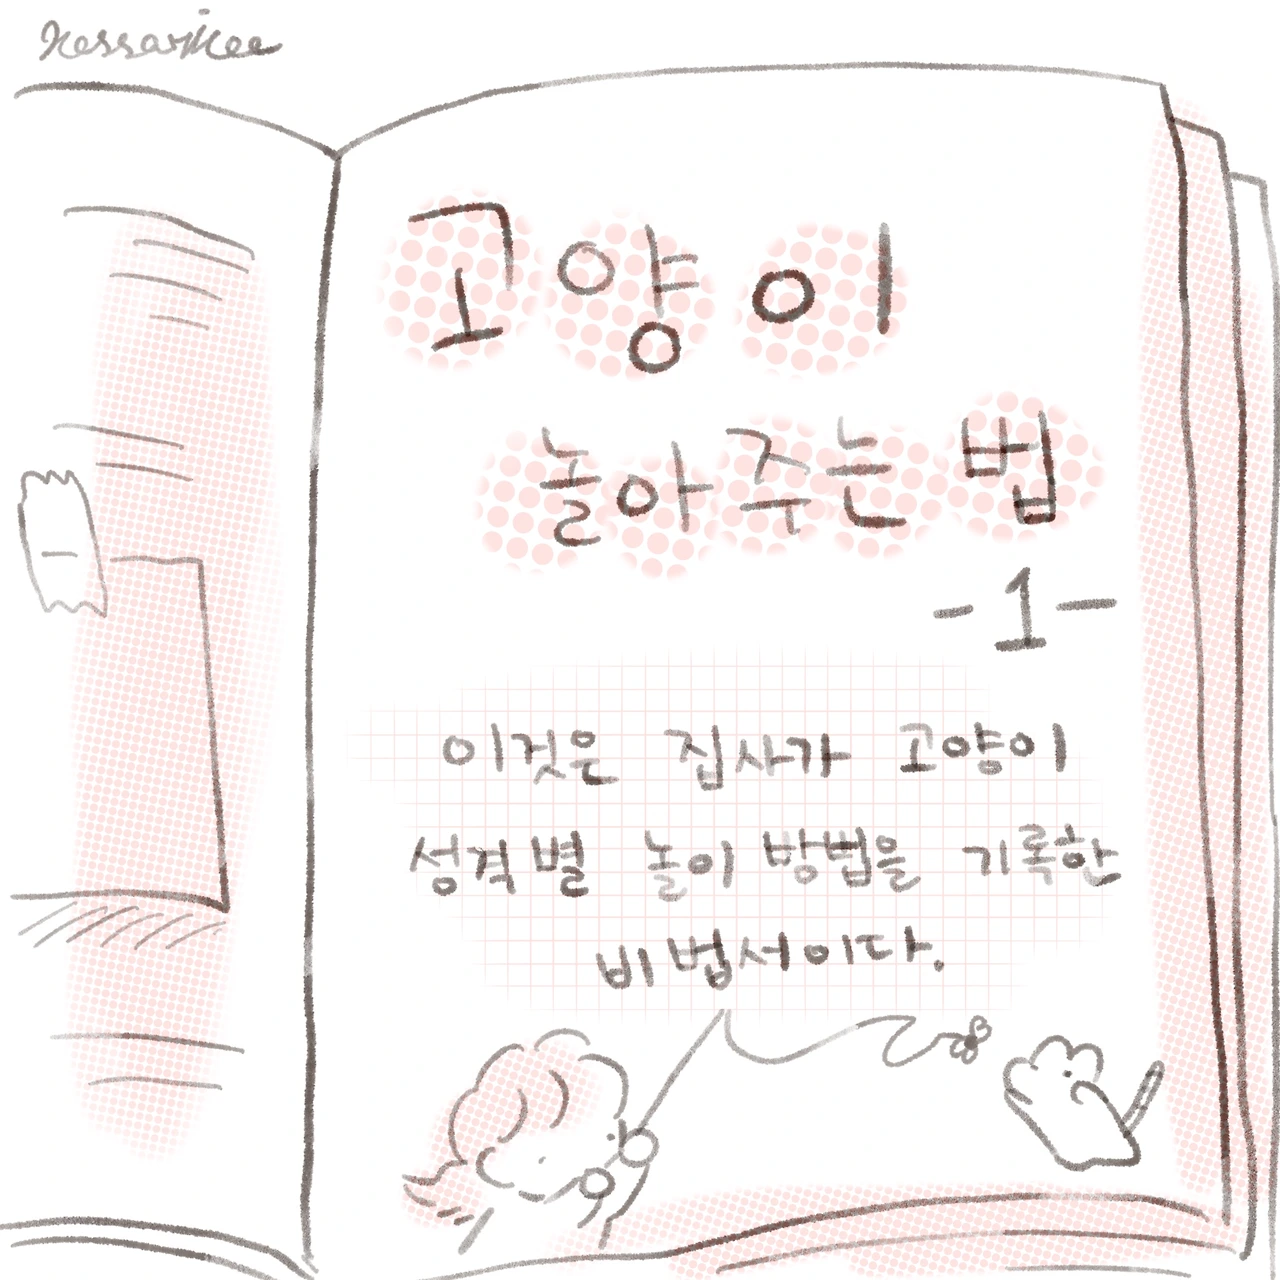 고양이
놀아주는 법
-1-
이것은 집사가 고양이
성격별 놀이 방법을 기록한
비법서이다.